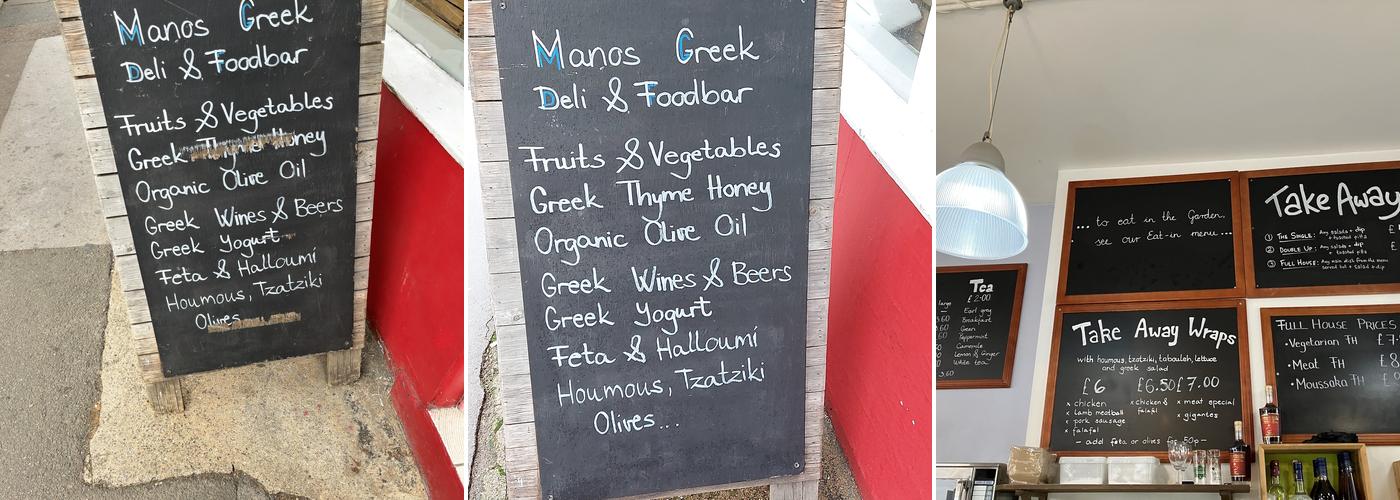 Manos Greek
Deli & Foodbar
Fruits & Vegetables
Greek Thyme Honey
Organic Olive Oil
Greek Wines & Beers
Greek Yogurt
Feta & Halloumi
Houmous, Tzatziki
Olives
Manos Greek
Deli & Foodbar
Fruits & Vegetables
Greek Thyme Honey
Organic Olive Oil
Greek Wines & Beers
Greek Yogurt
Feta & Halloumí
Houmous, Tzatziki
Olives...
... to eat in the Garden,
see our Eat-in menu...
Take Away
① THE SINGLE: Any salada + dip
+ toasted pitta
② DOUBLE UP: Any salads + dip
+ toasted pitta
③ FULL HOUSE: Any main dish from the menu
served hot + salad + dip
Tea
£2.00
large
Earl grey
Breakfast
Green
Peppermint
Camomile
Lemon & Ginger
White tea
3.60
Take Away Wraps
with houmous, tzatziki, tabouleh, lettuce
and greek salad
£6 £6.50 £7.00
x chicken
x lamb meatball
x pork sausage
x falafel
x chicken &
falafil
x meat special
x gigantes
- add feta or olives for 50p -
FULL HOUSE PRICES
• Vegetarian FH £7
• Meat FH £8
• Moussaka FH £